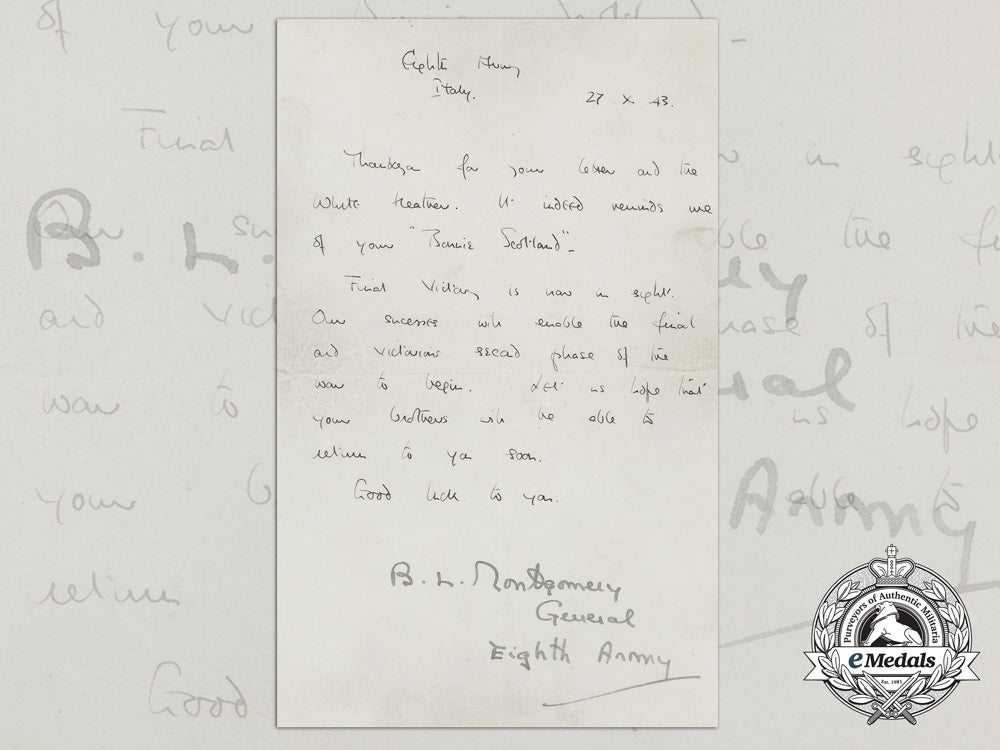 Eighth Army
Italy.
27. X. 43.
Thankyou for your letter and the
White Heather. It indeed reminds me
of your "Bonnie Scotland".
Final Victory is now in sight.
Our sucesses will enable the final
and victorious second phase of the
war to begin. Let us hope that
your brothers will be able to
return to you soon.
Good luck to you.
B. L. Montgomery
General
Eighth Army
Purveyors of Authentic Militaria
eMedals